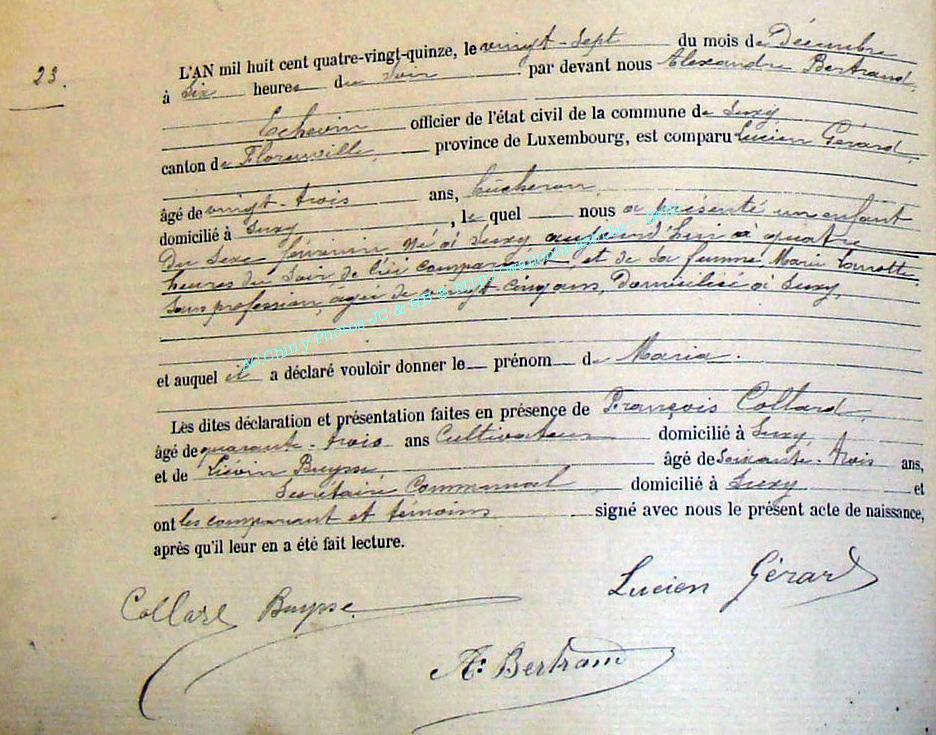 23.
L'AN mil huit cent quatre-vingt-quinze, le vingt-sept du mois de Décembre
à six heures du soir par devant nous Alexandre Bertrand,
Echevin officier de l'état civil de la commune de Suxy
canton de Florenville, province de Luxembourg, est comparu Lucien Gérard,
âgé de vingt-trois ans, bucheron,
domicilié à Suxy, le quel nous a présenté un enfant
du sexe féminin, né à Suxy, aujourd'hui à quatre
heures du soir, de lui comparant, et de sa femme, Marie
sans profession, âgée de vingt-cinq ans, domiciliée à Suxy,
et auquel il a déclaré vouloir donner le prénom de Maria.
Les dites déclaration et présentation faites en présence de François Collard
âgé de quarante-trois ans Cultivateur domicilié à Suxy,
et de Liévin Buysse âgé de soixante-trois ans,
Secrétaire Communal domicilié à Suxy et
ont les comparant et témoins signé avec nous le présent acte de naissance,
après qu'il leur en a été fait lecture.
Lucien Gérard
Collard Buysse
A: Bertrand